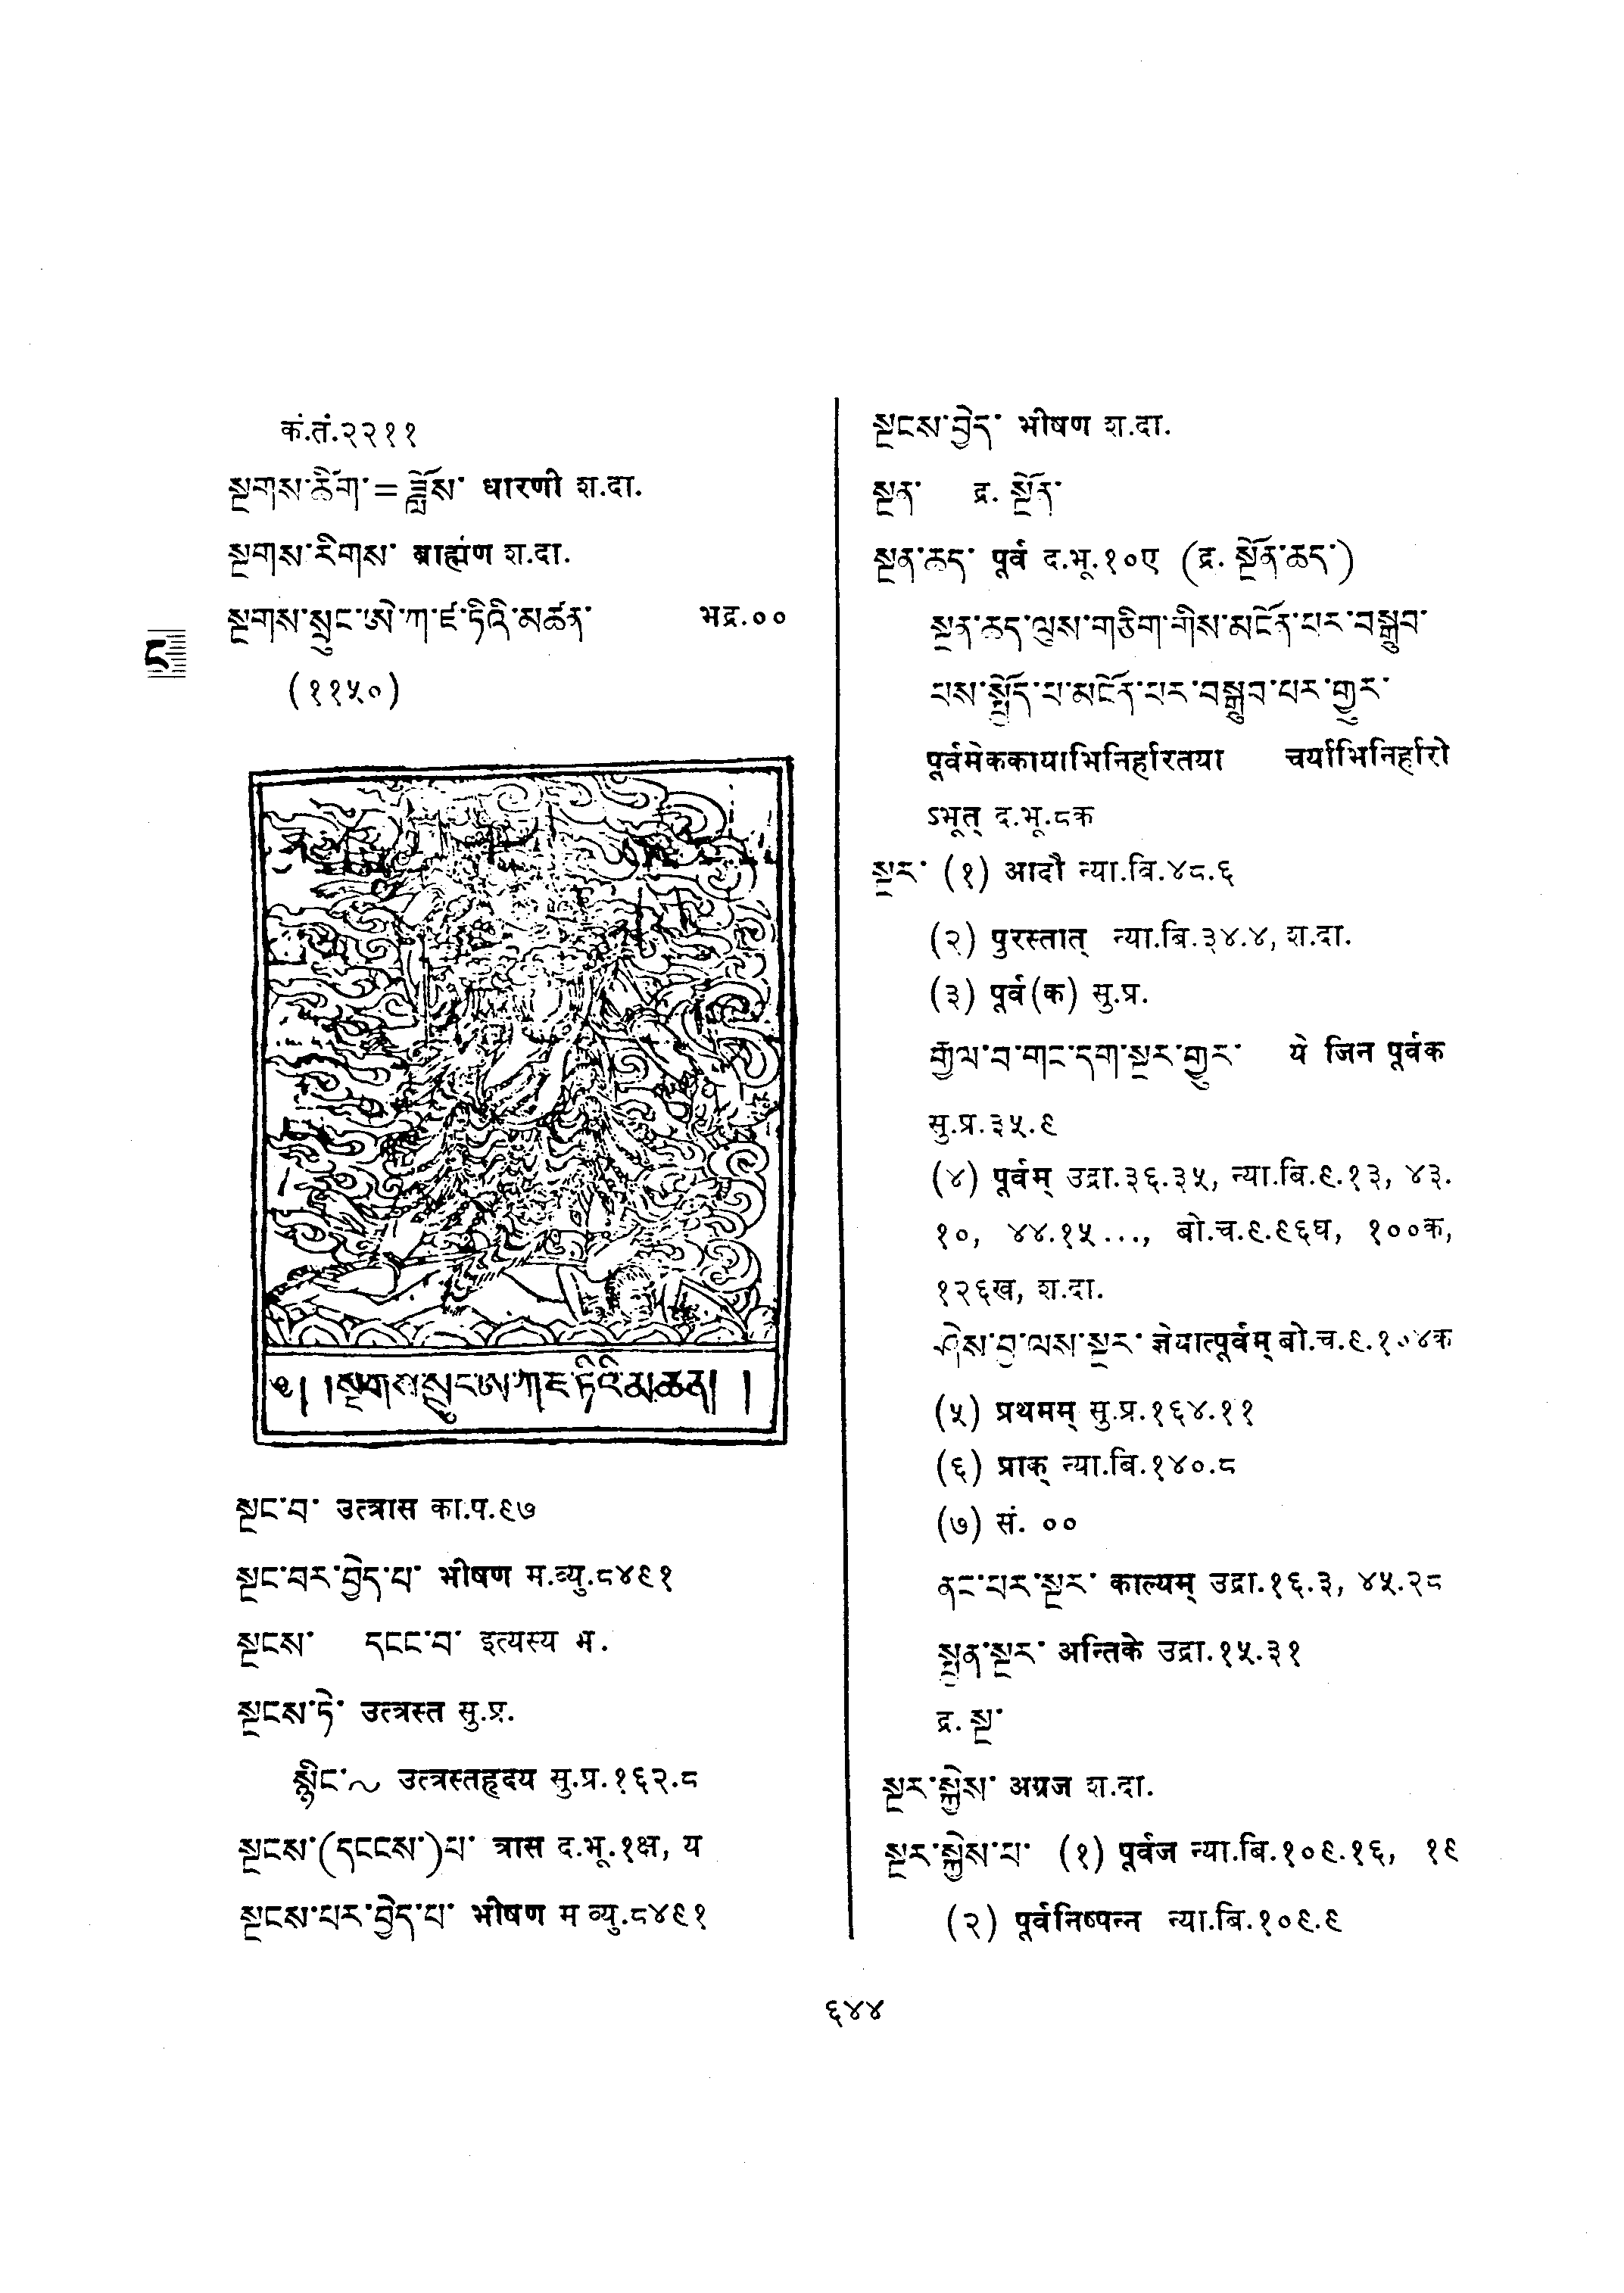 कं.तं.२२११
སྔགས་ཚིག་ = ཟློས་ धारणी श.दा.
སྔགས་རིགས་ ब्राह्मण श.दा.
སྔགས་སྲུང་ཨེ་ཀ་ཛ་ཏིའི་མཚན་ भद्र.००
(११५०)
ང
༄། །སྔགས་སྲུང་ཨ་ཀ་ཛ་ཏིའི་མཚན། །
སྔང་བ་ उत्त्रास का.प.९७
སྔང་བར་བྱེད་པ་ भीषण म.व्यु.८४९१
སྔངས་ དངང་བ་ इत्यस्य भ.
སྔངས་ཏེ་ उत्त्रस्त सु.प्र.
སྙིང་~ उत्त्रस्तहृदय सु.प्र.१६२.८
སྔངས་(དངངས་)པ་ त्रास द.भू.१क्ष, य
སྔངས་པར་བྱེད་པ་ भीषण म व्यु.८४९१
སྔངས་བྱེད་ भीषण श.दा.
སྔན་ द्र. སྔོན་
སྔན་ཆད་ पूर्व द.भू.१०ए (द्र. སྔོན་ཆད་)
སྔན་ཆད་ལུས་གཅིག་གིས་མངོན་པར་བསྒྲུབ་
པས་སྤྱོད་པ་མངོན་པར་བསྒྲུབ་པར་གྱུར་
पूर्वमेककायाभिनिर्हारतया चर्याभिनिर्हारो
ऽभूत् द.भू.८क
སྔར་ (१) आदौ न्या.बि.४८.६
(२) पुरस्तात् न्या.बि.३४.४, श.दा.
(३) पूर्व(क) सु.प्र.
རྒྱལ་བ་གང་དག་སྔར་གྱུར་ ये जिन पूर्वक
सु.प्र.३५.९
(४) पूर्वम् उद्रा.३६.३५, न्या.बि.९.१३, ४३.
१०, ४४.१५..., बो.च.९.९६घ, १००क,
१२६ख, श.दा.
ཤེས་བྱ་ལས་སྔར་ ज्ञेयात्पूर्वम् बो.च.९.१०४क
(५) प्रथमम् सु.प्र.१६४.११
(६) प्राक् न्या.बि.१४०.८
(७) सं. ००
ནང་པར་སྔར་ काल्यम् उद्रा.१६.३, ४५.२८
སྤྲན་སྔར་ अन्तिके उद्रा.१५.३१
द्र. སྔ་
སྔར་སྐྱེས་ अग्रज श.दा.
སྔར་སྐྱེས་པ་ (१) पूर्वज न्या.बि.१०९.१६, १९
(२) पूर्वनिष्पन्न न्या.बि.१०९.९
६४४